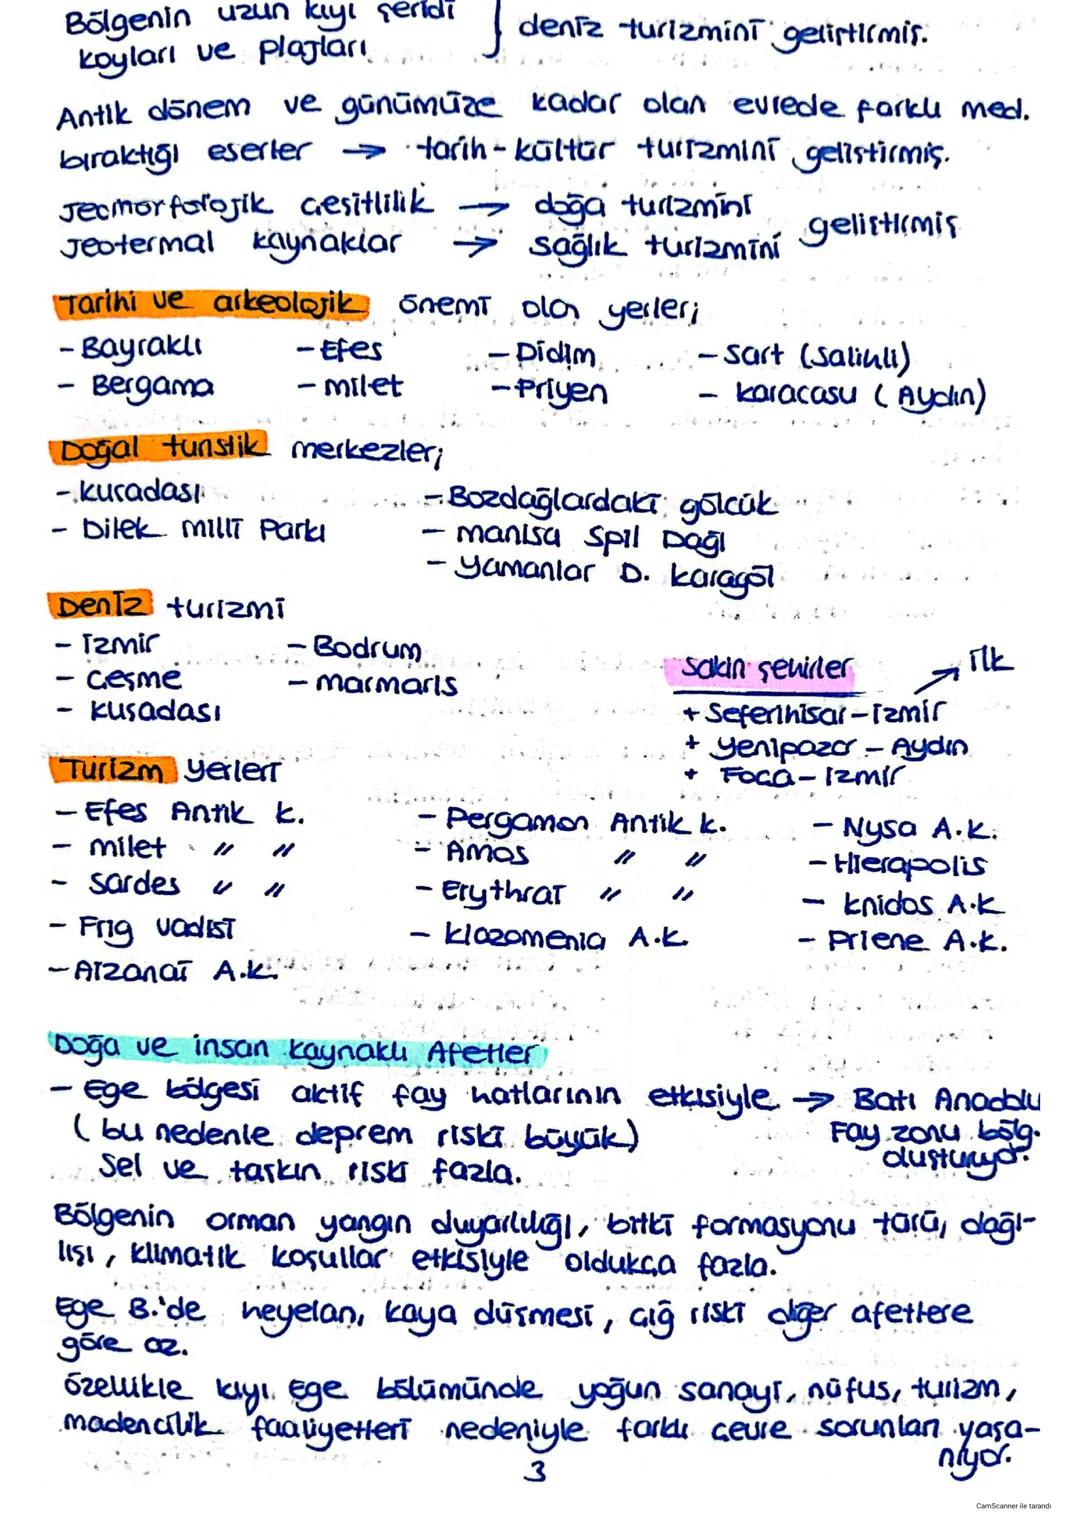 Bölgenin uzun kıyı şeridi
koyları ve plajları } deniz turizmini geliştirmiş.
Antik dönem ve günümüze kadar olan evrede farklı med.
bıraktığı eserler → tarih-kültür turizmini geliştirmiş.
Jeomorfolojik çeşitlilik → doğa turizmini
Jeotermal kaynaklar → sağlık turizmini geliştirmiş
Tarihi ve arkeolojik önemi olan yerler;
- Bayraklı - Efes - Didim - Sart (Salihli)
- Bergama - milet - Priyen - karacasu (Aydın)
Doğal turistik merkezler;
- kuşadası - Bozdağlardaki gölcük
- Dilek milli Parkı - manisa Spil Dağı
- Yamanlar D. karagöl
Deniz turizmi
- İzmir - Bodrum
- Çeşme - marmaris
- kuşadası
Sakin şehirler → ilk
+ Seferihisar - İzmir
+ Yenipazar - Aydın
+ Foça - İzmir
Turizm Yerleri
- Efes Antik k. - Pergamon Antik k. - Nysa A.k.
- milet " " - Amos " " - Hierapolis
- Sardes " " - Erythrai " " - knidos A.k
- Frig vadisi - klazomenia A.k. - Priene A.k.
- Aizanoi A.k.
Doğa ve insan kaynaklı Afetler
- Ege bölgesi aktif fay hatlarının etkisiyle → Batı Anadolu
(bu nedenle deprem riski büyük) Fay zonu bölg.
Sel ve taşkın riski fazla. oluşturuyor.
Bölgenin orman yangın duyarlılığı, bitki formasyonu türü, dağı-
lışı, klimatik koşullar etkisiyle oldukça fazla.
Ege B.'de heyelan, kaya düşmesi, çığ riski diğer afetlere
göre az.
özellikle kıyı Ege bölümünde yoğun sanayi, nüfus, turizm,
madencilik faaliyetleri nedeniyle farklı çevre sorunları yaşa-
nıyor.
3
CamScanner ile tarandı